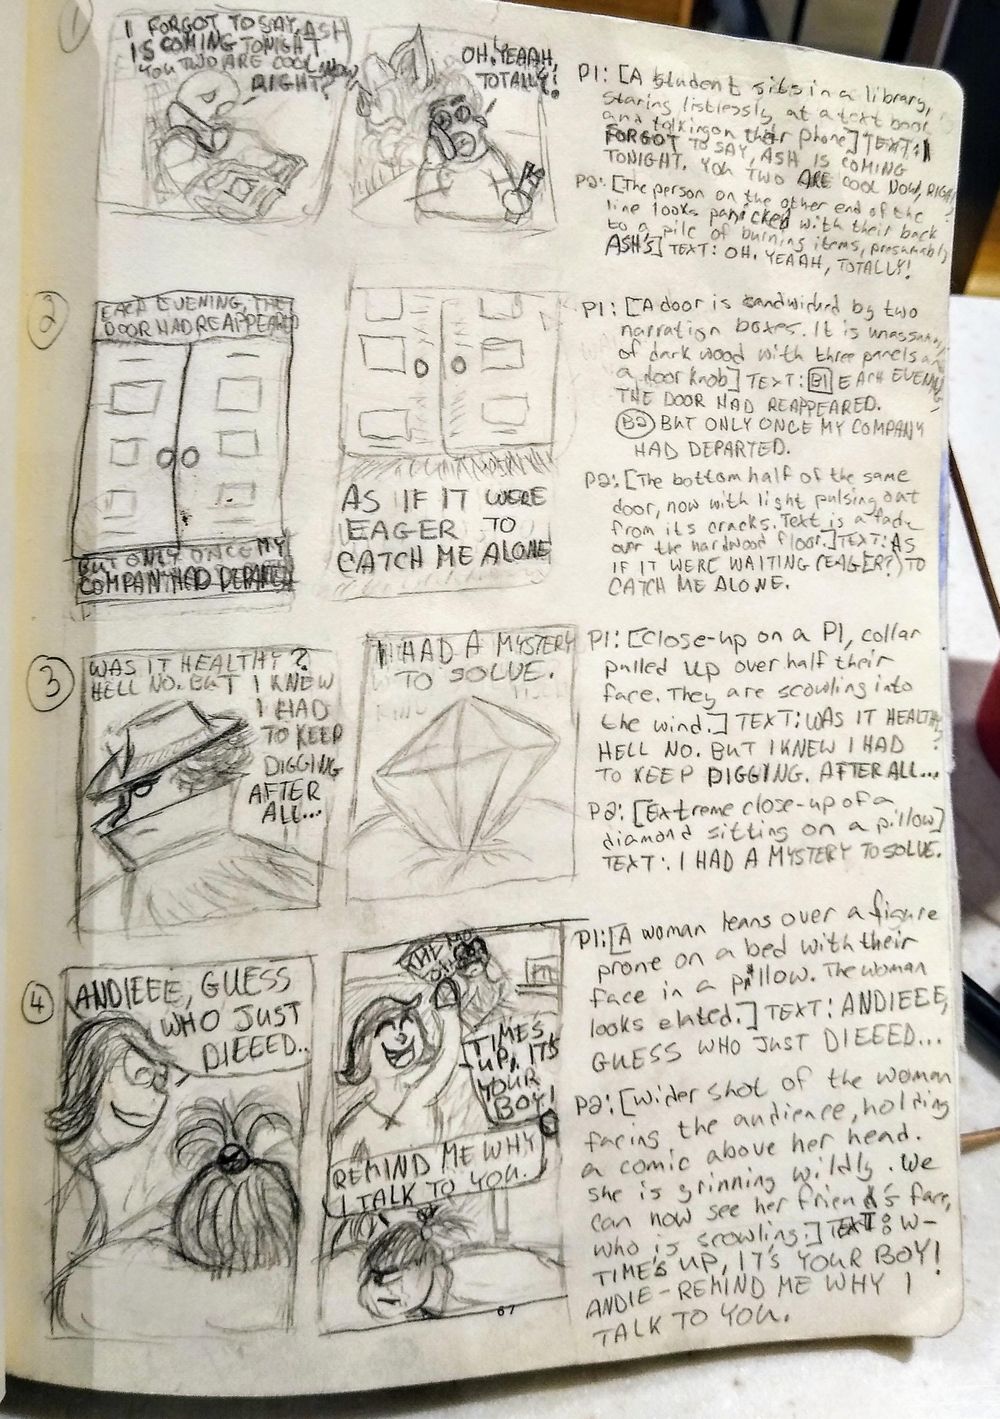 1
I FORGOT TO SAY, ASH
IS COMING TONIGHT
YOU TWO ARE COOL NOW,
RIGHT?
OH, YEAAH,
TOTALLY!
P1: [A student sits in a library,
staring listlessly, at a text book
and talking on their phone] TEXT: I
FORGOT TO SAY, ASH IS COMING
TONIGHT. YOU TWO ARE COOL NOW, RIGHT?
P2: [The person on the other end of the
line looks panicked with their back
to a pile of burning items, presumably
ASH'S] TEXT: OH, YEAAH, TOTALLY!
2
EACH EVENING, THE
DOOR HAD REAPPEARED
BUT ONLY ONCE MY
COMPANY HAD DEPARTED
AS IF IT WERE
EAGER TO
CATCH ME ALONE
P1: [A door is sandwiched by two
narration boxes. It is
of dark wood with three panels
a door knob] TEXT: B1 EACH EVENING,
THE DOOR HAD REAPPEARED.
B2 BUT ONLY ONCE MY COMPANY
HAD DEPARTED.
P2: [The bottom half of the same
door, now with light pulsing out
from its cracks. Text is a fade
over the hardwood floor.] TEXT: AS
IF IT WERE WAITING (EAGER?) TO
CATCH ME ALONE.
3
WAS IT HEALTHY?
HELL NO. BUT I KNEW
I HAD
TO KEEP
DIGGING
AFTER
ALL...
I HAD A MYSTERY
TO SOLVE.
P1: [Close-up on a PI, collar
pulled up over half their
face. They are scowling into
the wind.] TEXT: WAS IT HEALTHY?
HELL NO. BUT I KNEW I HAD
TO KEEP DIGGING. AFTER ALL...
P2: [Extreme close-up of a
diamond sitting on a pillow]
TEXT: I HAD A MYSTERY TO SOLVE.
4
ANDIEEE, GUESS
WHO JUST
DIEEED..
TIME'S
UP, IT'S
YOUR
BOY!
REMIND ME WHY
I TALK TO YOU.
67
P1: [A woman leans over a figure
prone on a bed with their
face in a pillow. The woman
looks elated.] TEXT: ANDIEEE,
GUESS WHO JUST DIEEED...
P2: [Wider shot of the woman
facing the audience, holding
a comic above her head.
she is grinning wildly. We
can now see her friend's face,
who is scowling.] TEXT: W-
TIME'S UP, IT'S YOUR BOY!
ANDIE - REMIND ME WHY I
TALK TO YOU.